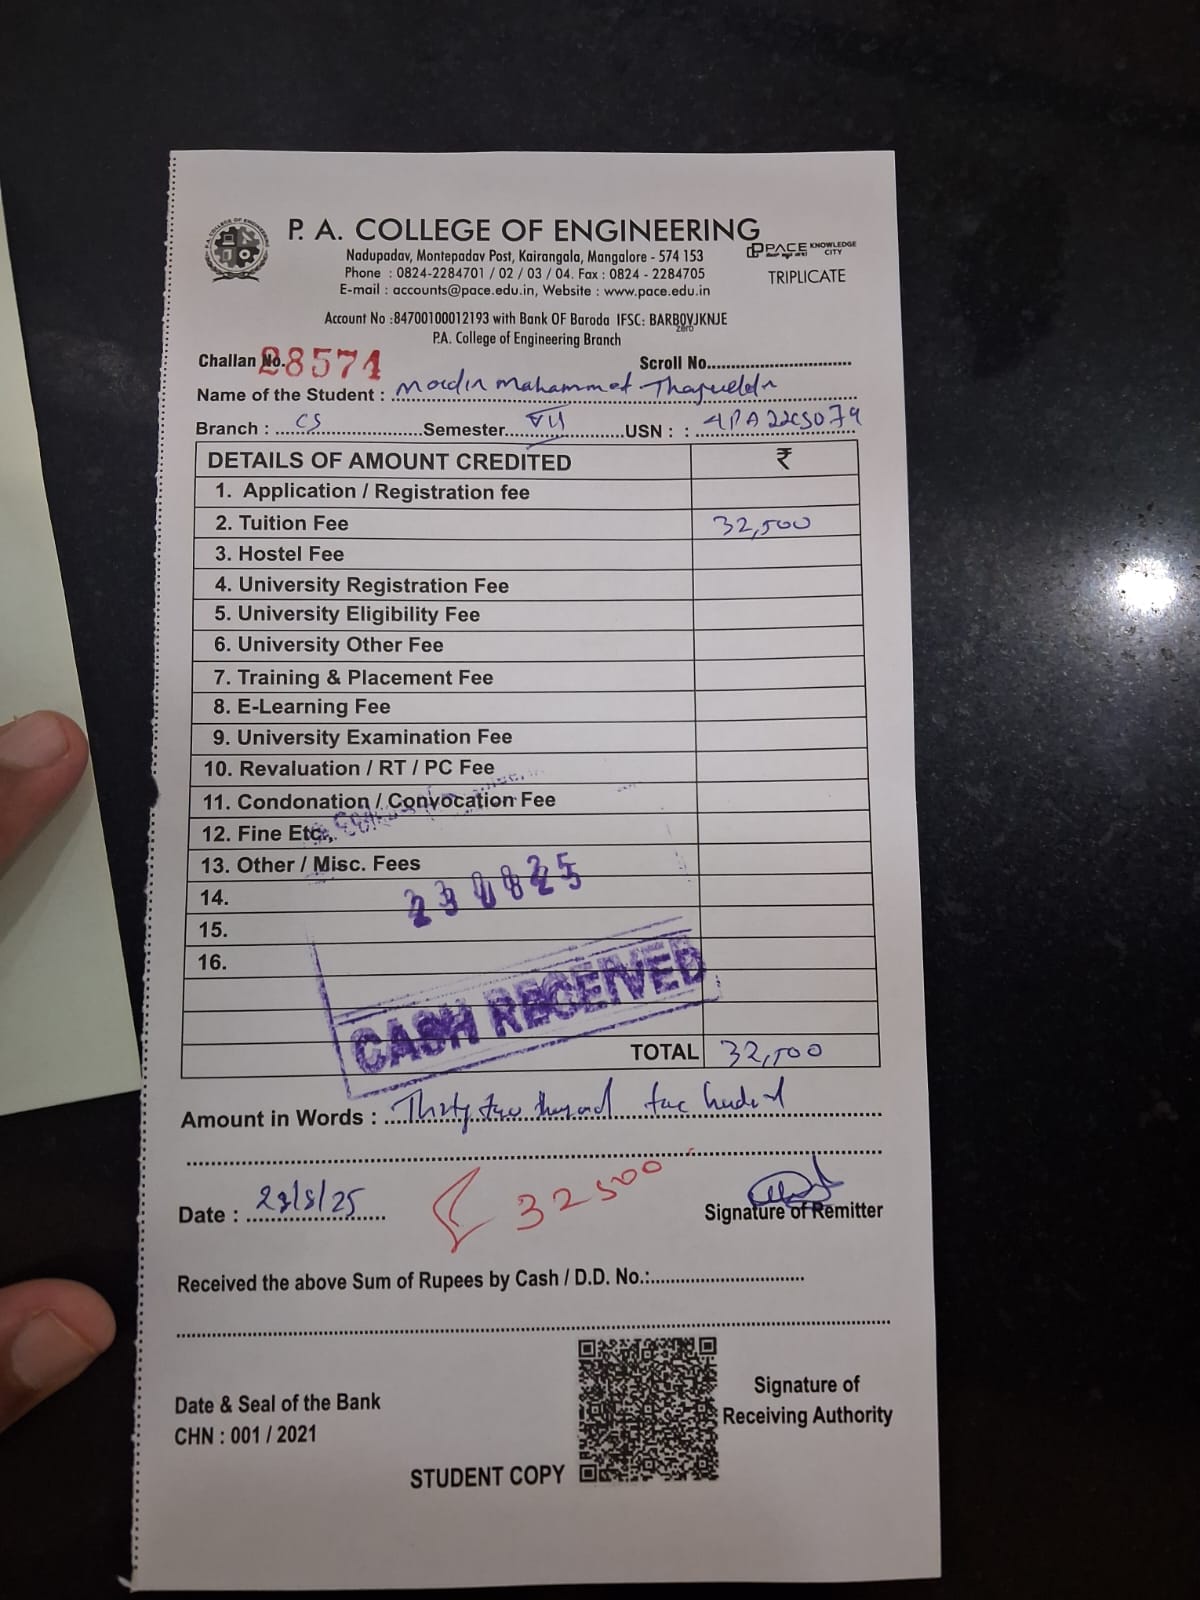 P. A. COLLEGE OF ENGINEERING
Nadupadav, Montepadav Post, Kairangala, Mangalore - 574 153
Phone : 0824-2284701 / 02 / 03 / 04. Fax : 0824 - 2284705
E-mail : accounts@pace.edu.in, Website : www.pace.edu.in
PACE KNOWLEDGE CITY
TRIPLICATE
Account No :84700100012193 with Bank OF Baroda IFSC: BARB0VJKNJE
zero
P.A. College of Engineering Branch
Challan No. 28574 Scroll No.
Name of the Student : Mahammed
Branch : CS Semester VII USN : : 4PA22CS079
DETAILS OF AMOUNT CREDITED ₹
1. Application / Registration fee
2. Tuition Fee 32,500
3. Hostel Fee
4. University Registration Fee
5. University Eligibility Fee
6. University Other Fee
7. Training & Placement Fee
8. E-Learning Fee
9. University Examination Fee
10. Revaluation / RT / PC Fee
11. Condonation / Convocation Fee
12. Fine Etc.,
13. Other / Misc. Fees
14.
15.
16.
CASH RECEIVED
TOTAL 32,500
Amount in Words : Thirty two
Date : 23/8/25 32500 Signature of Remitter
Received the above Sum of Rupees by Cash / D.D. No.:
Date & Seal of the Bank
CHN : 001 / 2021
Signature of
Receiving Authority
STUDENT COPY